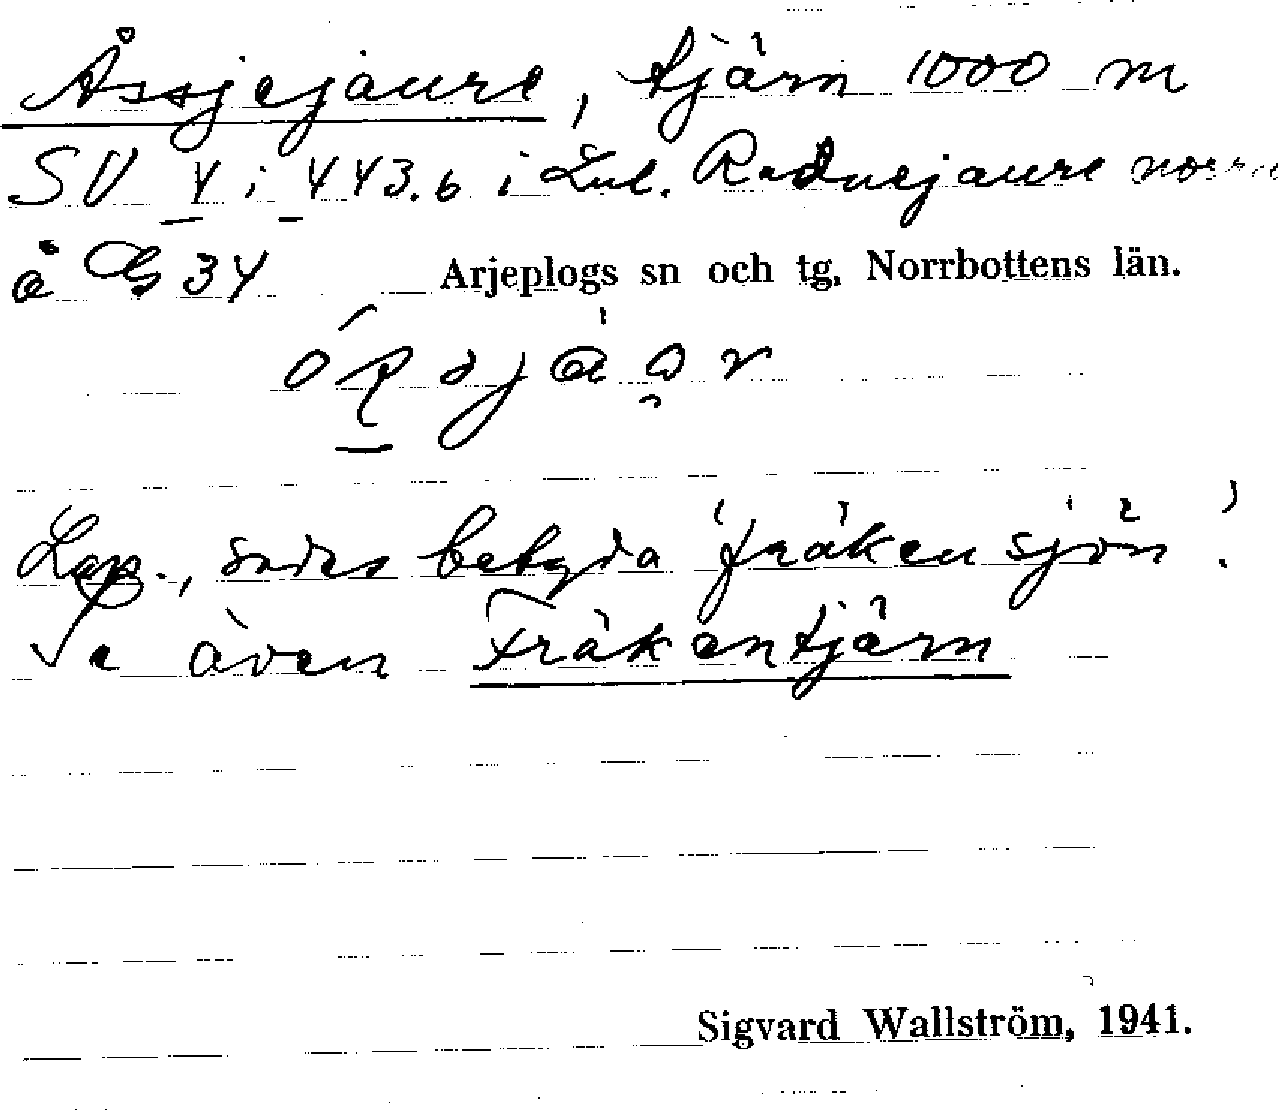 Åssjejaure, tjärn 1000 m
SV 4 i 443.6 i Lul. Radnejaure norra
å G 34 Arjeplogs sn och tg, Norrbottens län.
Lap., sades betyda 'fräkensjön'.
Se även Fräkentjärn
Sigvard Wallström, 1941.